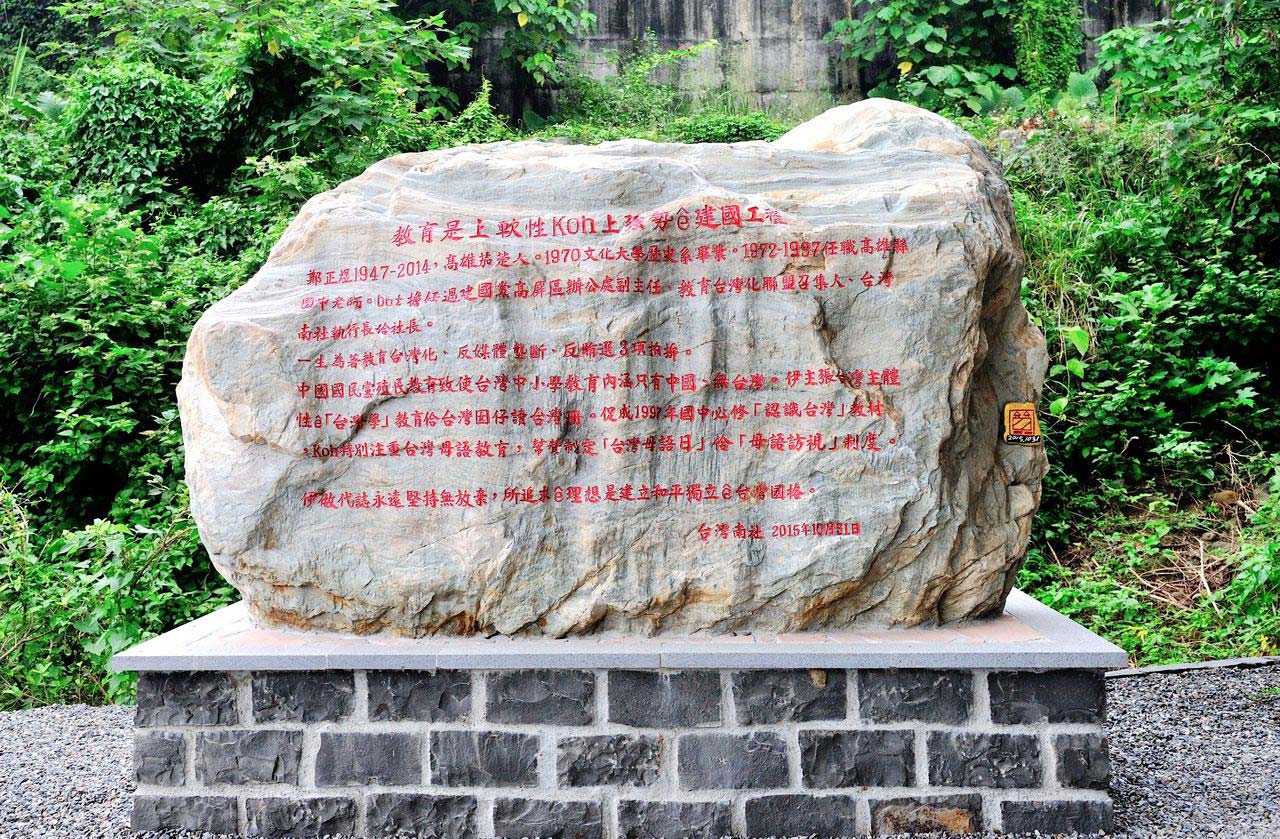 教育是上軟性Koh上強勢ê建國工程
鄭正煜1947-2014，高雄茄萣人。1970文化大學歷史系畢業。1972-1997任職高雄縣
國中老師。Bat擔任過建國黨高屏區辦公處副主任、教育台灣化聯盟召集人、台灣
南社執行長佮社長。
一生為著教育台灣化、反媒體壟斷、反賄選3項拍拚。
中國國民黨殖民教育致使台灣中小學教育內涵只有中國、無台灣。伊主張台灣主體
性ê「台灣學」教育佮台灣囡仔讀台灣冊。促成1997年國中必修「認識台灣」教材
。Koh特別注重台灣母語教育，幫贊制定「台灣母語日」佮「母語訪視」制度。
伊做代誌永遠堅持無放棄，所追求ê理想是建立和平獨立ê台灣國格。
台灣南社 2015年10月31日
2015.1031